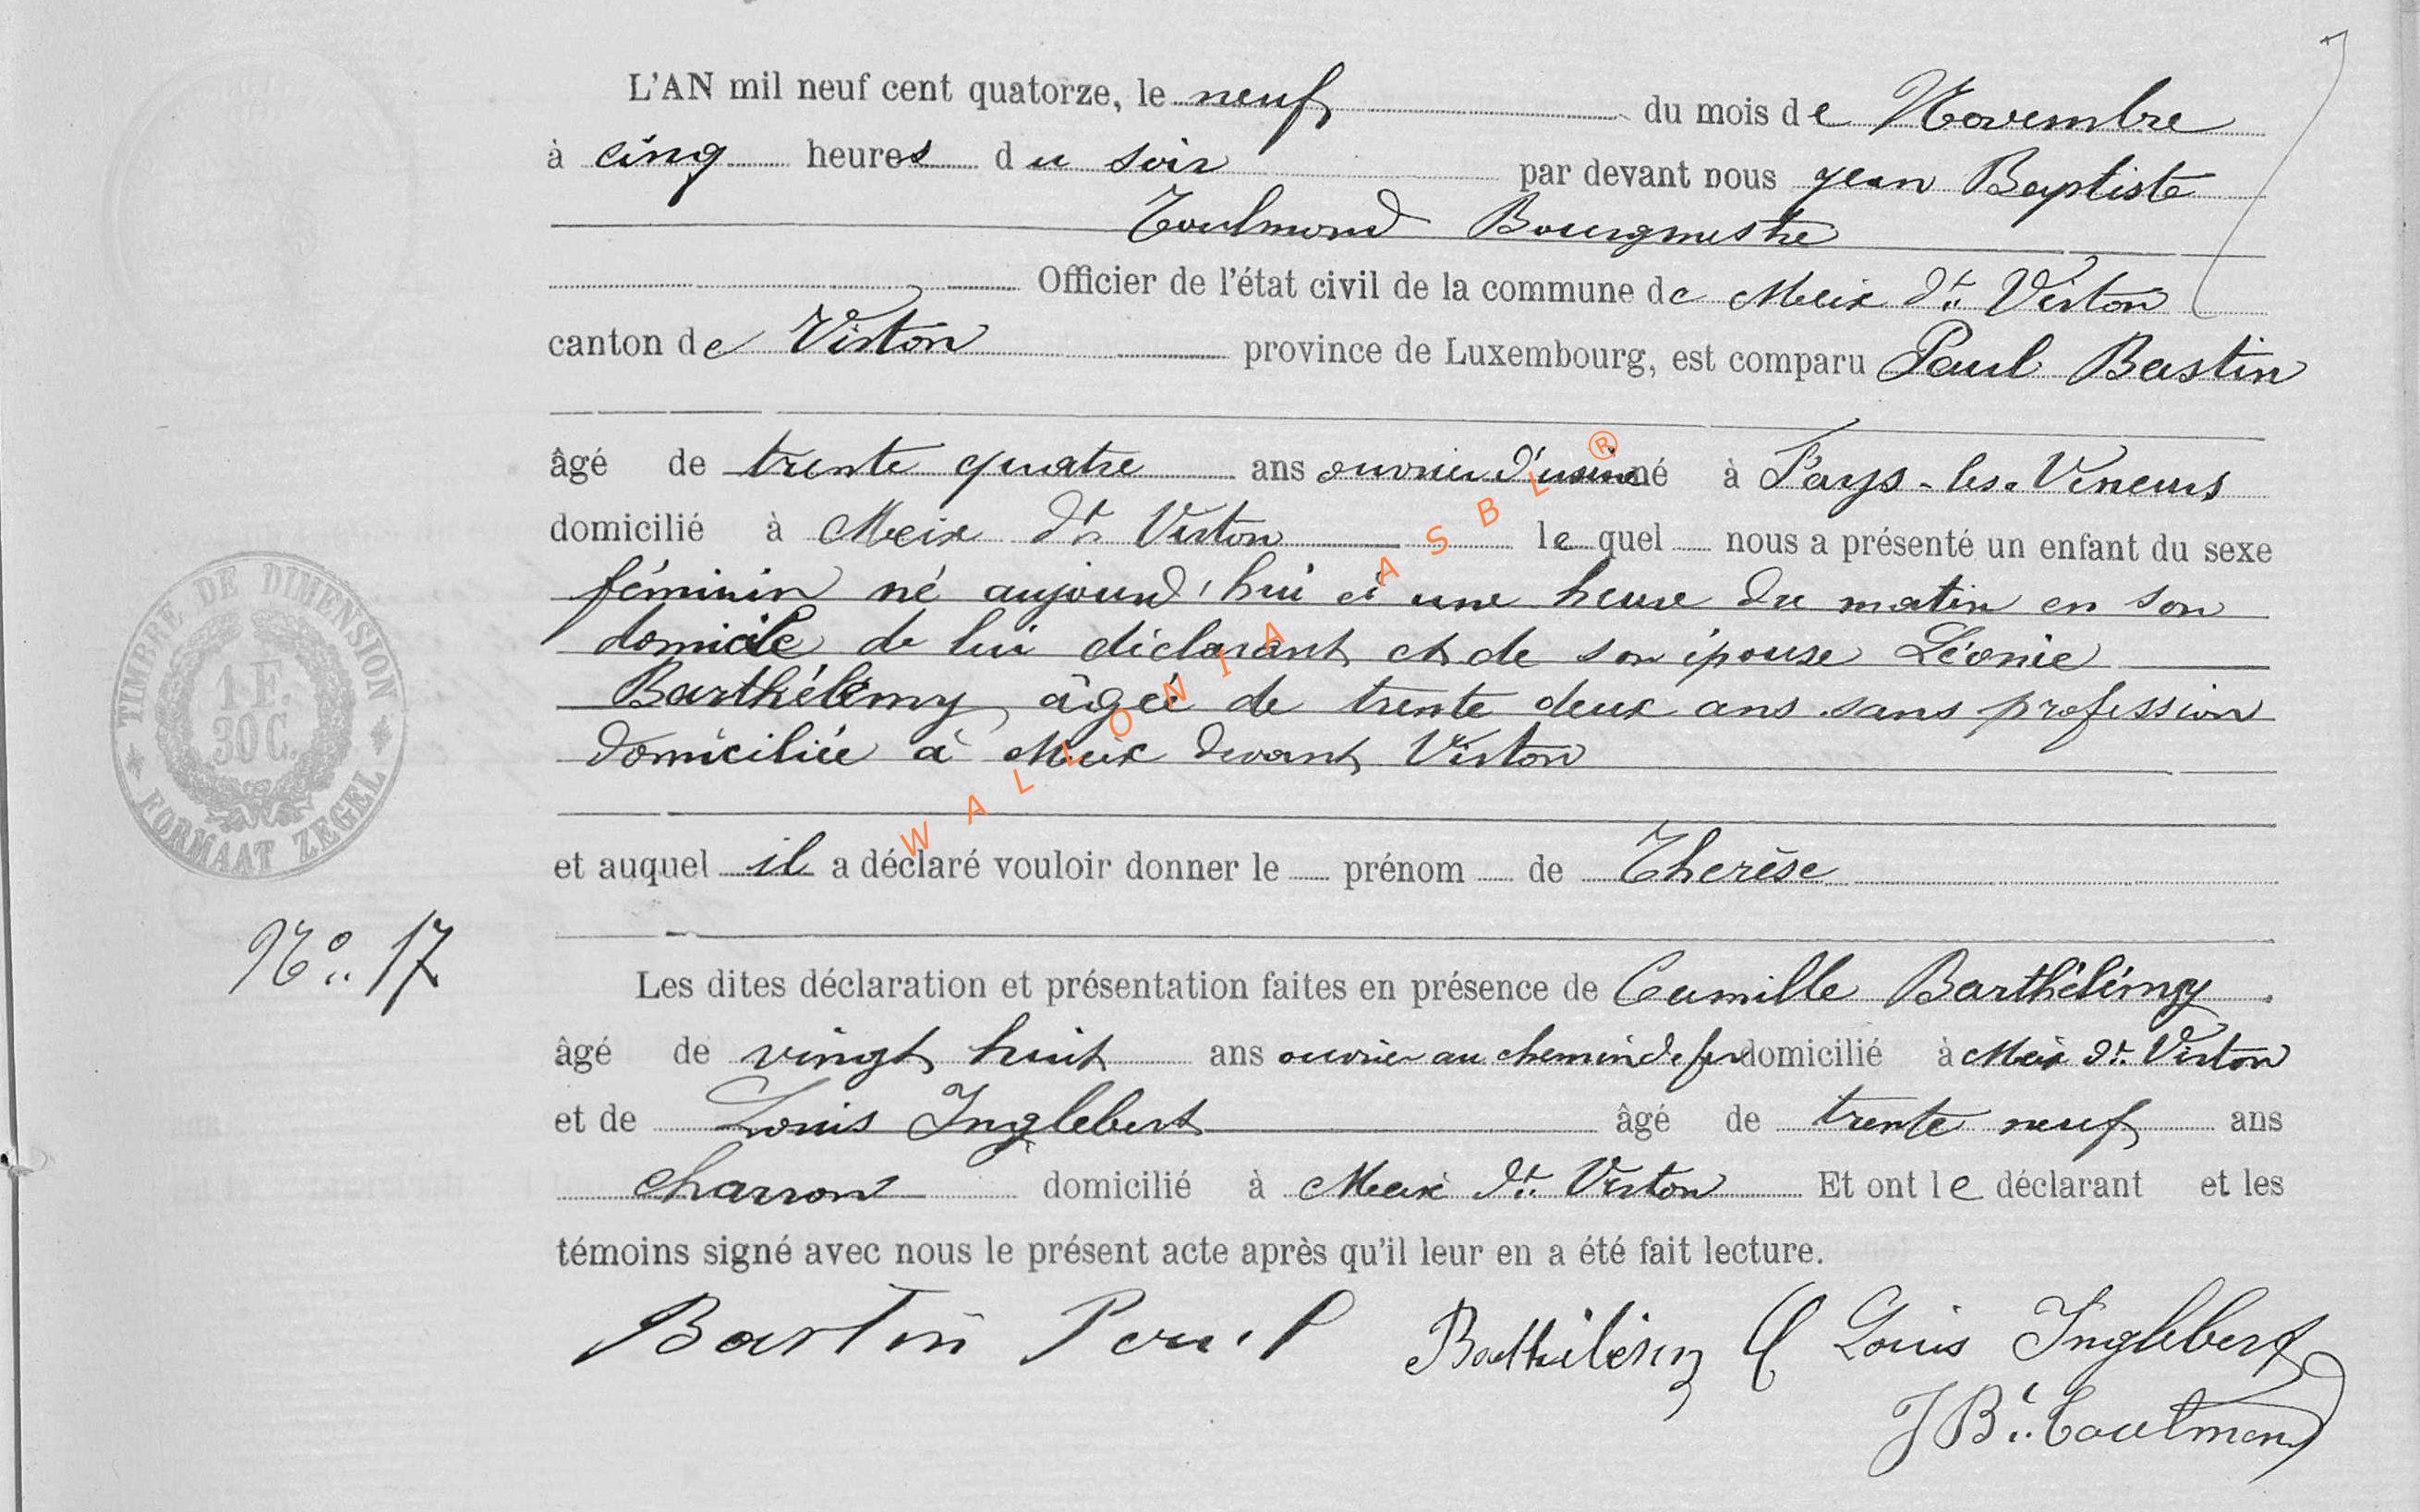 L'AN mil neuf cent quatorze, le neuf du mois de Novembre
à cinq heures du soir par devant nous jean Baptiste
Toulmond Bourgmestre
Officier de l'état civil de la commune de Meix dt Virton
canton de Virton province de Luxembourg, est comparu Paul Bastin
âgé de trente quatre ans ouvrier d'usine né à Fays-les-Veneurs
domicilié à Meix dt Virton le quel nous a présenté un enfant du sexe
féminin né aujourd'hui à une heure du matin en son
domicile de lui déclarant et de son épouse Léonie
Barthélémy âgée de trente deux ans sans profession
domiciliée à Meix devant Virton
et auquel il a déclaré vouloir donner le prénom de Therèse
TIMBRE DE DIMENSION
1 F.
30 C.
FORMAAT ZEGEL
WALLONIA ASBL ®
No 17
Les dites déclaration et présentation faites en présence de Camille Barthélémy
âgé de vingt huit ans ouvrier au chemin de fer domicilié à Meix dt Virton
et de Louis Inglebert âgé de trente neuf ans
charron domicilié à Meix dt Virton Et ont le déclarant et les
témoins signé avec nous le présent acte après qu'il leur en a été fait lecture.
Bastin Paul Barthélémy C Louis Inglebert
J Bte Toulmond